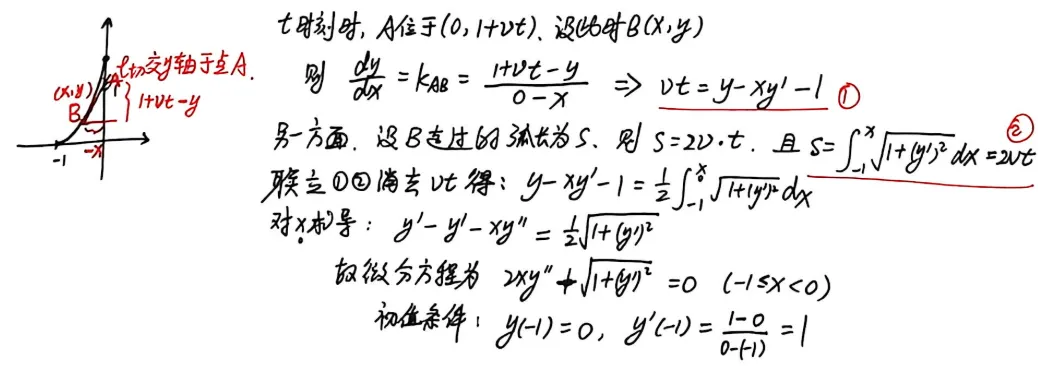 t时刻时, A位于(0, 1+vt)、设此时B(x,y)
l切交y轴于点A.
(x,y)
A
B
1+vt-y
-1
-x
则 dy/dx = k_AB = (1+vt-y)/(0-x) ⇒ vt = y-xy'-1 ①
另一方面, 设B走过的弧长为S、则 S=2v·t, 且 S=∫_{-1}^{x} √(1+(y')²) dx = 2vt ②
联立①②消去vt得: y-xy'-1 = 1/2 ∫_{-1}^{x} √(1+(y')²) dx
对x求导: y'-y'-xy'' = 1/2 √(1+(y')²)
故微分方程为 2xy''+√(1+(y')²) = 0 (-1≤x<0)
初值条件: y(-1)=0, y'(-1) = (1-0)/(0-(-1)) = 1